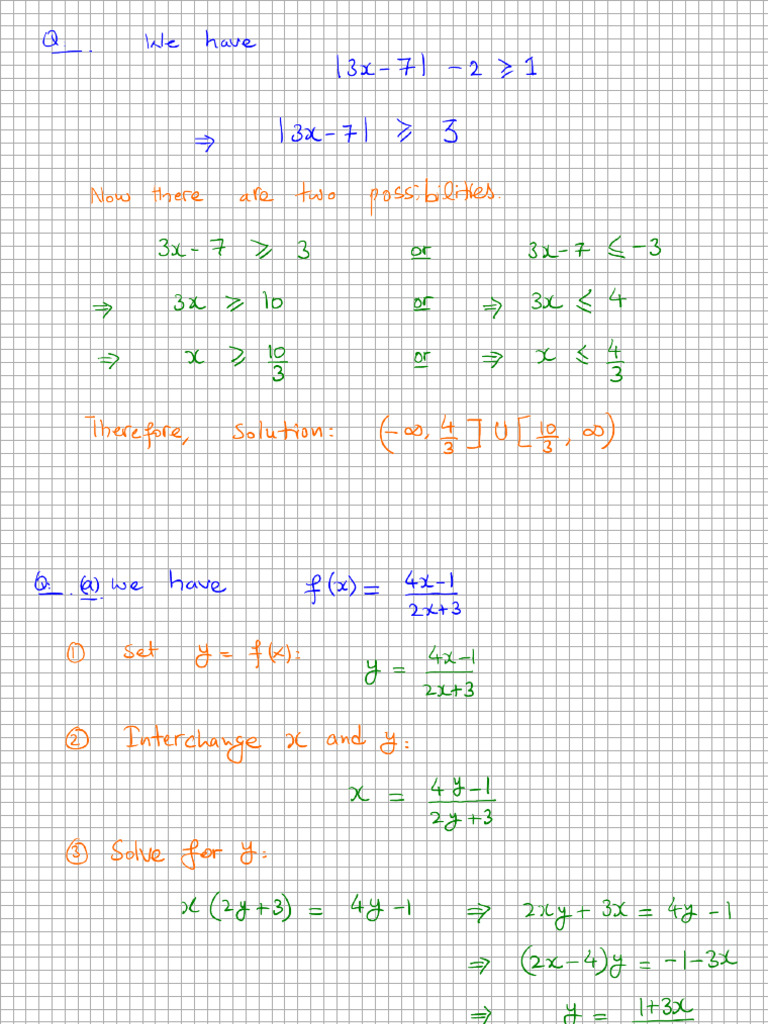 Q. We have
|3x-7| -2 ≥ 1
⇒ |3x-7| ≥ 3
Now there are two possibilities.
3x-7 ≥ 3 or 3x-7 ≤ -3
⇒ 3x ≥ 10 or ⇒ 3x ≤ 4
⇒ x ≥ 10/3 or ⇒ x ≤ 4/3
Therefore, Solution: (-∞, 4/3] ∪ [10/3, ∞)
Q. (a) We have f(x) = (4x-1)/(2x+3)
① Set y = f(x): y = (4x-1)/(2x+3)
② Interchange x and y:
x = (4y-1)/(2y+3)
③ Solve for y:
x(2y+3) = 4y-1 ⇒ 2xy+3x = 4y-1
⇒ (2x-4)y = -1-3x
⇒ y = 1+3x